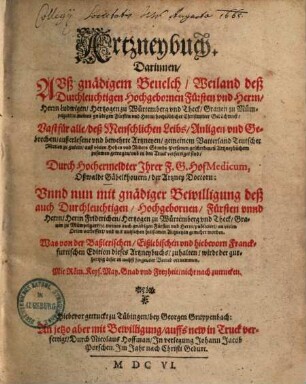 Collegij Societatis Jesu Augustae
Artzneybuch,
Darinnen/
Auß gnädigem Beuelch/ Weiland deß
Durchleuchtigen Hochgebornen Fürsten vnd Herrn/
Herrn Ludwigen/ Hertzogen zu Würtemberg vnd Theck/ Grauen zu Müm-
Vast für alle/ deß Menschlichen Leibs/ Anligen vnd Ge-
brechen/ außerlesene vnd bewehrte Artzneyen/ gemeinem Vatterland Teutscher
Durch Hochermeldter Ihrer F. G. Hof Medicum,
Oßwaldt Gäbelkhouern/ der Artzney Doctorn:
Vnnd nun mit gnädiger Bewilligung deß
auch Durchleuchtigen/ Hochgebornen/ Fürsten vnnd
Herrn/ Herrn Friderichen/ Hertzogen zu Würtemberg vnd Theck/ Gra-
Was von der Baßlerischen/ Eißlebischen vnd hieuorn Franck-
furtischen Edition dieses Artzneybuchs/ zuhalten/ wirdt der gut-
Mit Röm. Keys. May. Gnad vnd Freyheit/ nicht nach zutrucken.
Hiebeuor getruckt zu Tübingen/ bey Georgen Gruppenbach:
An jetzo aber mit Bewilligung/ auffs new in Truck ver-
fertigt/ Durch Nicolaum Hoffman/ In verlegung Johann Jacob
Porschen. Im Jahr nach Christi Geburt.
M DC VI.